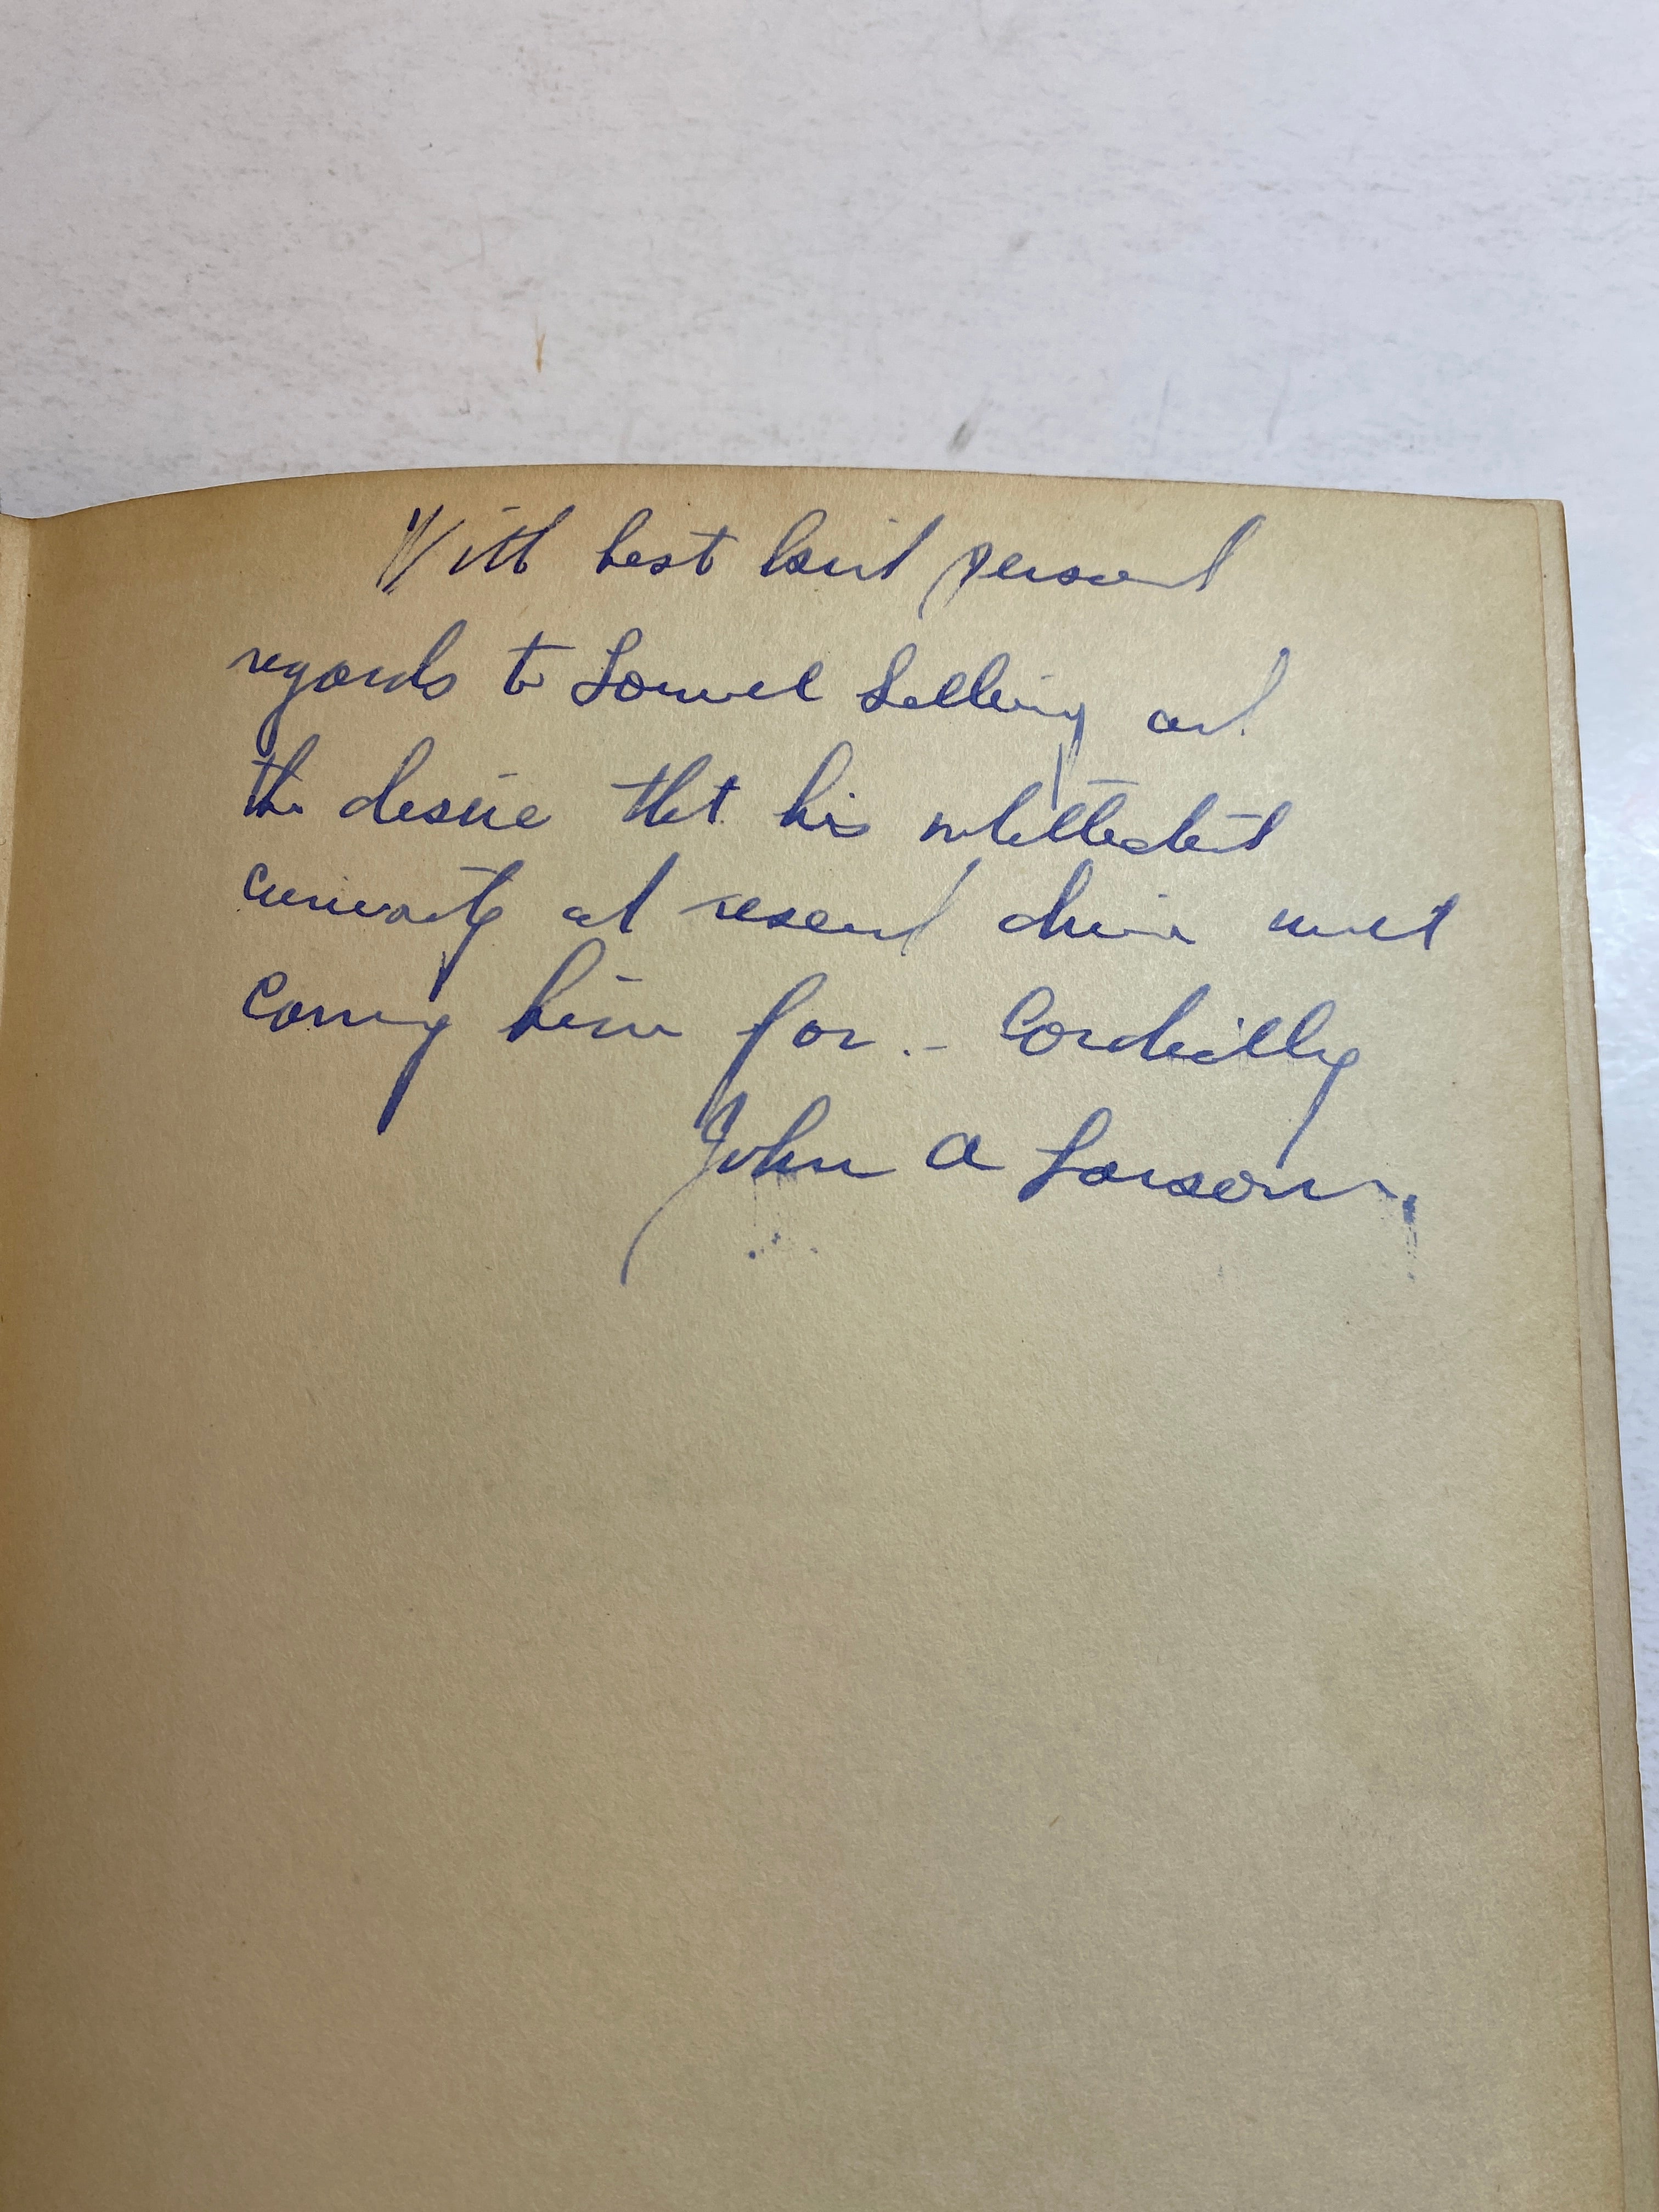 With best kind personal
regards to Lowell Selling and
the desire that his
curiosity and research drive must
carry him far. - Cordially
John A Larson